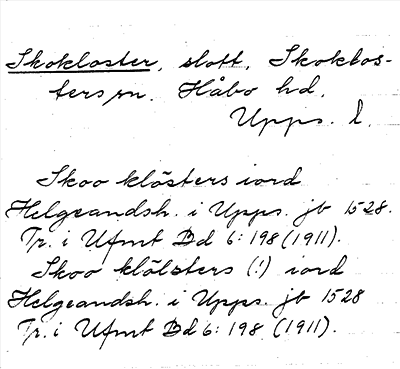 Skokloster, slott, Skoklos-
ters sn. Håbo hd.
Upps. l.
Skoo klösters iord
Helgeandsh. i Upps. jb 1528.
Tr. i Ufmt Bd 6: 198 (1911).
Skoo klölsters (!) iord
Helgeandsh. i Upps. jb 1528
Tr. i Ufmt Bd 6: 198 (1911).